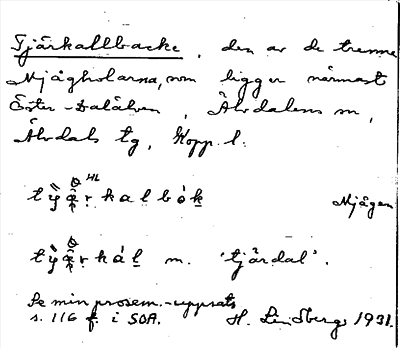 Tjärkallbacke, den av de trenne
Mjågholarna, som ligger närmast
Öster-Dalälven, Älvdalens sn,
Älvdals tg, Kopp. l.
Mjågen
m. 'tjärdal'.
Se min prosem.-uppsats
s. 116 f. i SOA. H. Lindberg 1931.